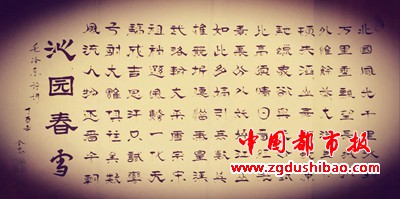 北國風光千里冰
万里雪飘望长城内
外惟余莽莽大河上下
頓失滔滔山舞銀蛇原
馳蠟象欲與天公試
比高須晴日
看紅装素裹分外妖嬈江山
如此多嬌引無數英雄競
折腰惜秦皇漢
武略输文采唐宗宋
祖稍遜風騷一代天
驕成吉思汗只識彎
弓射大雕俱往矣數
風流人物还看今朝
毛泽东诗词
沁园春雪
中國都市报
www.zgdushibao.com